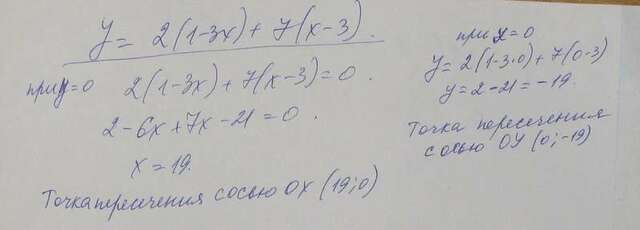 y = 2(1-3x) + 7(x-3).
при y=0 2(1-3x)+7(x-3)=0.
2-6x+7x-21=0.
x=19.
Точка пересечения с осью OX (19;0)
при x=0
y=2(1-3·0)+7(0-3)
y=2-21=-19.
Точка пересечения
с осью OY (0;-19)